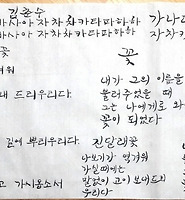 김춘수
바사아 자차카타파하하
바사아 자차카타파하하
가나다
자차카
꽃
꽃
겨워
내가 그의 이름을
불러주었을 때
그는 나에게로 와
꽃이 되었다
내 드리우리다.
길에 뿌리우리다.
진달래꽃
나보기가 역겨워
가실때에는
말없이 고이 보내드리
우리다
고 가시옵소서